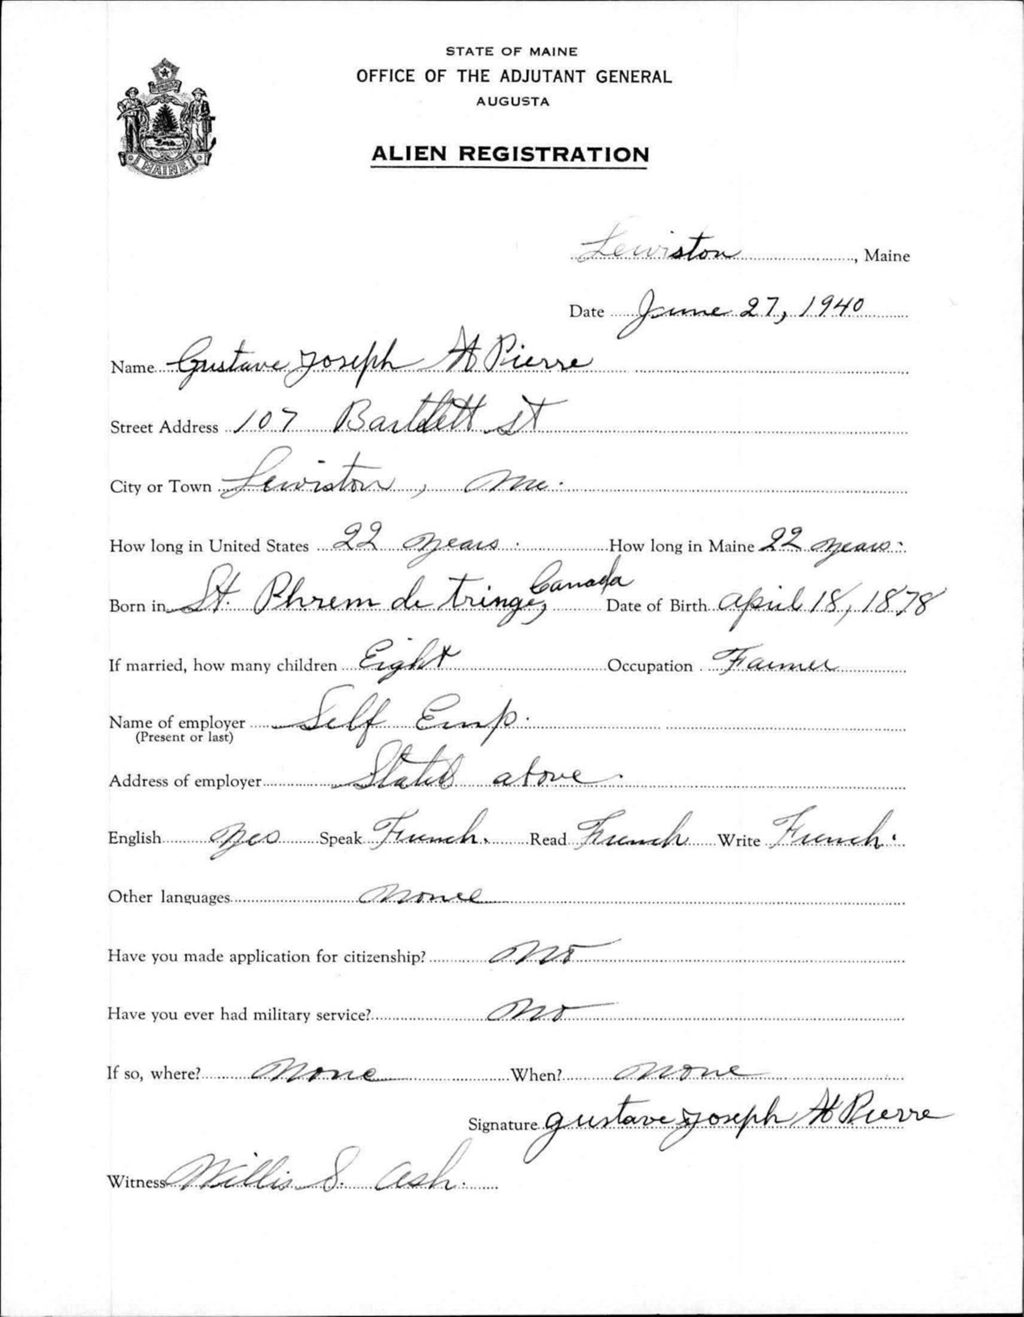 STATE OF MAINE
OFFICE OF THE ADJUTANT GENERAL
AUGUSTA
ALIEN REGISTRATION
MAINE
Lewiston, Maine
Date June 27, 1940
Name Gustave Joseph St Pierre
Street Address 107 Bartlett St
City or Town Lewiston, Me.
How long in United States 22 years. How long in Maine 22 years.
Born in St. Phrem de tringe, Canada Date of Birth April 18, 1878
If married, how many children Eight Occupation Farmer
Name of employer Self Emp.
(Present or last)
Address of employer Stated above.
English Yes Speak French. Read French Write French.
Other languages None
Have you made application for citizenship? No
Have you ever had military service? No
If so, where? None When? None
Signature Gustave Joseph St Pierre
Witness Willis S. Ash.